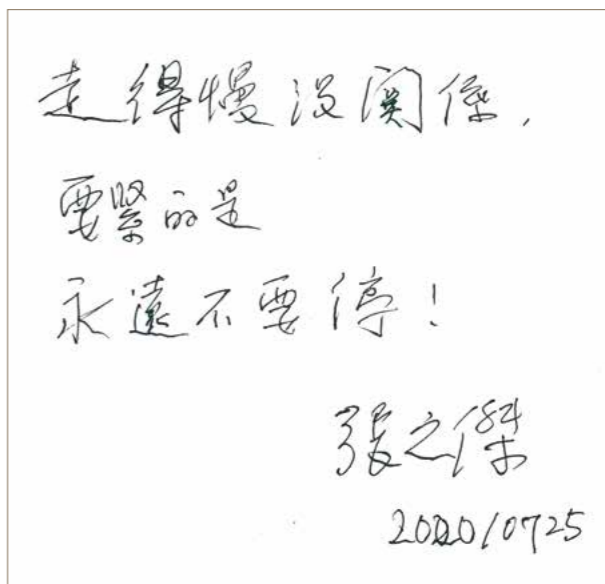 走得慢沒関係，
要緊的是
永遠不要停！
張之傑
2020/0725